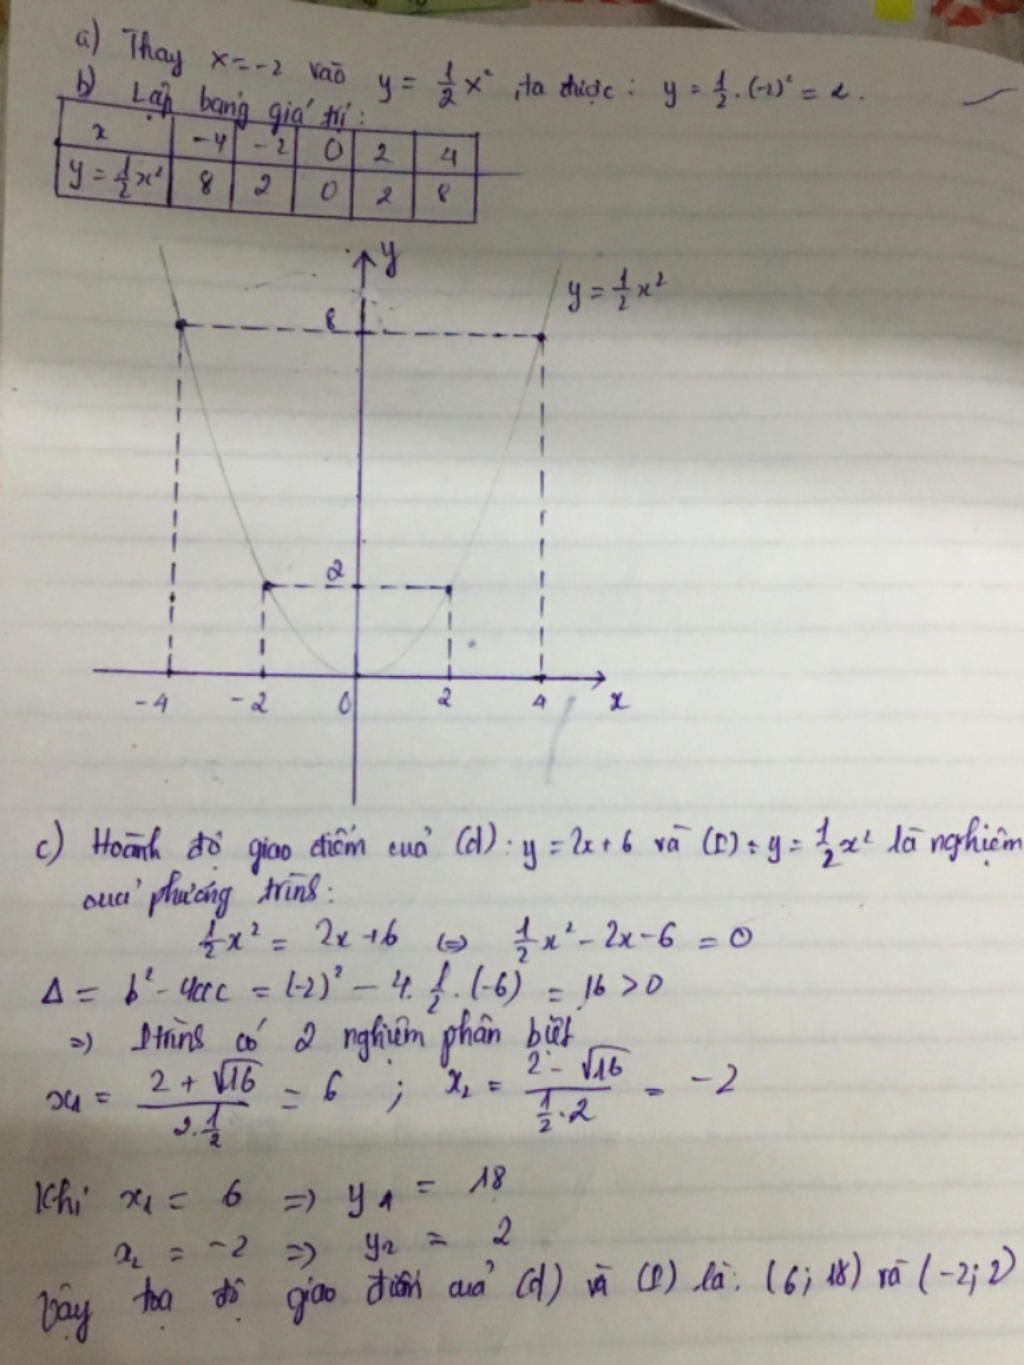 a) Thay x = -2 vào y = 1/2 x², ta được: y = 1/2 . (-2)² = 2.
b) Lập bảng giá trị:
x -4 -2 0 2 4
y = 1/2 x² 8 2 0 2 8
y
y = 1/2 x²
8
2
-4 -2 0 2 4 x
c) Hoành độ giao điểm của (d): y = 2x + 6 và (P): y = 1/2 x² là nghiệm
của phương trình:
1/2 x² = 2x + 6 ⇔ 1/2 x² - 2x - 6 = 0
Δ = b² - 4ac = (-2)² - 4 . 1/2 . (-6) = 16 > 0
⇒ Ptrình có 2 nghiệm phân biệt
x₁ = (2 + √16)/(2 . 1/2) = 6 ; x₂ = (2 - √16)/(1/2 . 2) = -2
Khi x₁ = 6 ⇒ y₁ = 18
x₂ = -2 ⇒ y₂ = 2
Vậy tọa độ giao điểm của (d) và (P) là: (6; 18) và (-2; 2)